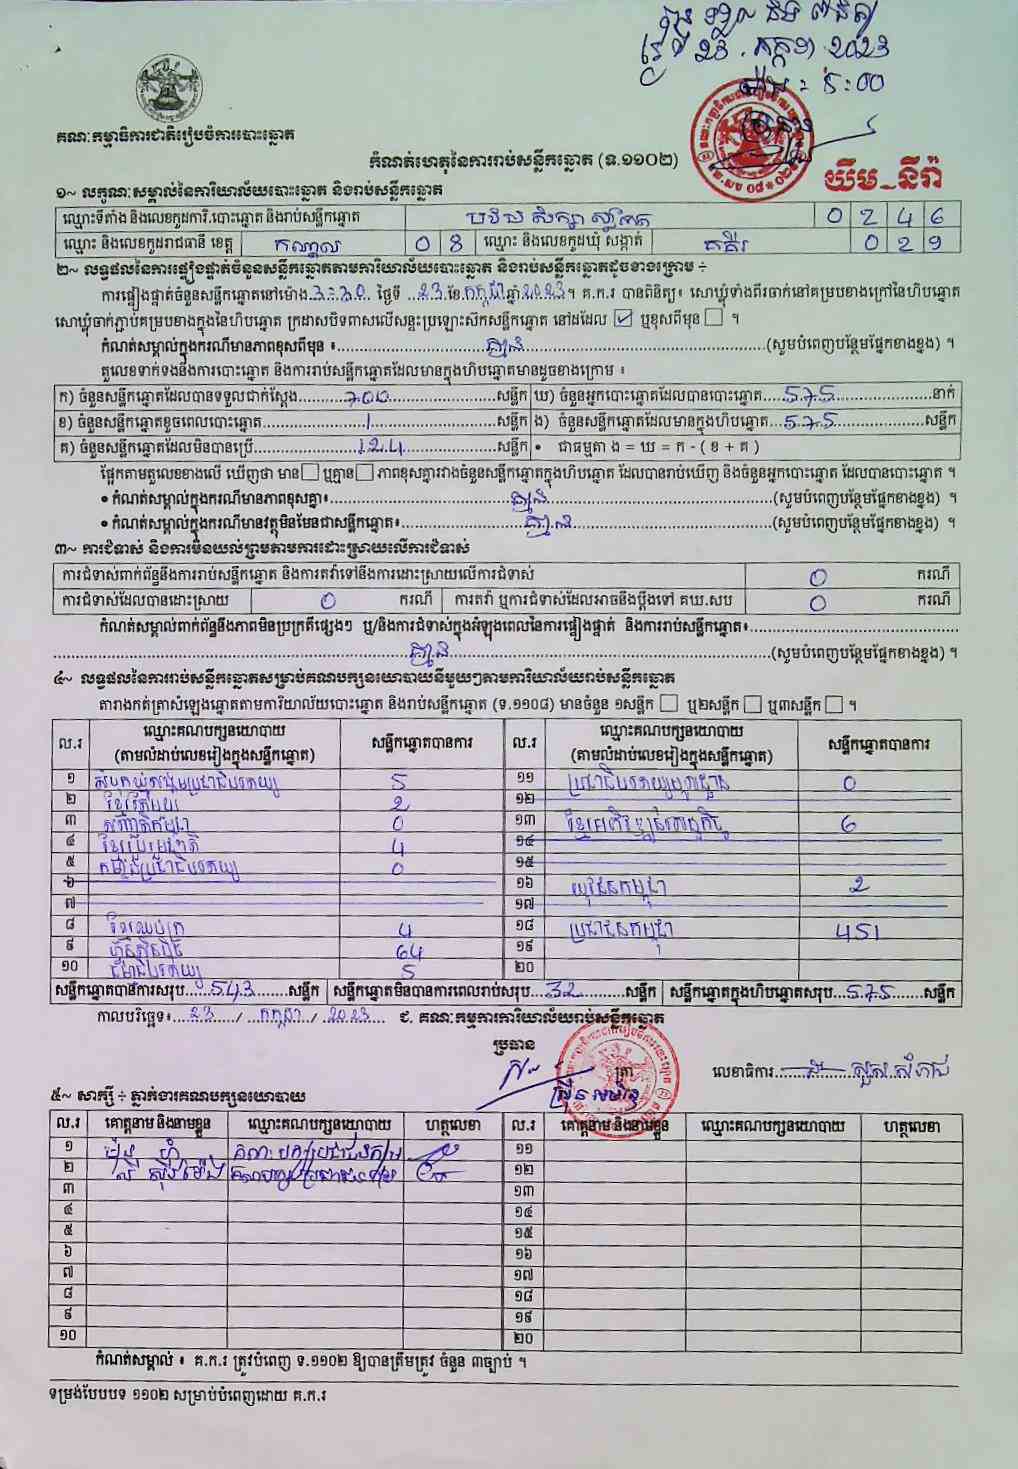 ថ្ងៃទី 23 . កក្កដា 2023
ម៉ោង : 5:00
គណៈកម្មាធិការជាតិរៀបចំការបោះឆ្នោត
កំណត់ហេតុនៃការរាប់សន្លឹកឆ្នោត (ទ.១១០២)
ឃឹម_នីរ៉ា
១~ លក្ខណៈសម្គាល់នៃការិយាល័យបោះឆ្នោត និងរាប់សន្លឹកឆ្នោត
ឈ្មោះទីតាំង និងលេខកូដការិ.បោះឆ្នោត និងរាប់សន្លឹកឆ្នោត 0 2 4 6
ឈ្មោះ និងលេខកូដរាជធានី ខេត្ត កណ្តាល 0 8 ឈ្មោះ និងលេខកូដឃុំ សង្កាត់ គគីរ 0 2 9
២~ លទ្ធផលនៃការផ្ទៀងផ្ទាត់ចំនួនសន្លឹកឆ្នោតតាមការិយាល័យបោះឆ្នោត និងរាប់សន្លឹកឆ្នោតដូចខាងក្រោម ÷
ការផ្ទៀងផ្ទាត់ចំនួនសន្លឹកឆ្នោតនៅម៉ោង 3:30 ថ្ងៃទី 23 ខែ កក្កដា ឆ្នាំ 2023។ គ.ក.រ បានពិនិត្យ៖ សោឃ្លុំទាំងពីរចាក់នៅគម្របខាងក្រៅនៃហិបឆ្នោត
សោឃ្លុំចាក់ភ្ជាប់គម្របខាងក្នុងនៃហិបឆ្នោត ក្រដាសបិទពាសលើសន្ទះប្រឡោះស៊កសន្លឹកឆ្នោត នៅដដែល ☑ ឬខុសពីមុន ☐ ។
កំណត់សម្គាល់ក្នុងករណីមានភាពខុសពីមុន ៖ គ្មាន (សូមបំពេញបន្ថែមផ្នែកខាងខ្នង) ។
តួលេខទាក់ទងនឹងការបោះឆ្នោត និងការរាប់សន្លឹកឆ្នោតដែលមានក្នុងហិបឆ្នោតមានដូចខាងក្រោម ៖
ក) ចំនួនសន្លឹកឆ្នោតដែលបានទទួលជាក់ស្តែង 700 សន្លឹក ឃ) ចំនួនអ្នកបោះឆ្នោតដែលបានបោះឆ្នោត 575 នាក់
ខ) ចំនួនសន្លឹកឆ្នោតខូចពេលបោះឆ្នោត 1 សន្លឹក ង) ចំនួនសន្លឹកឆ្នោតដែលមានក្នុងហិបឆ្នោត 575 សន្លឹក
គ) ចំនួនសន្លឹកឆ្នោតដែលមិនបានប្រើ 124 សន្លឹក • ជាធម្មតា ង = ឃ = ក - ( ខ + គ )
ផ្អែកតាមតួលេខខាងលើ ឃើញថា មាន ☐ ឬគ្មាន ☐ ភាពខុសគ្នារវាងចំនួនសន្លឹកឆ្នោតក្នុងហិបឆ្នោត ដែលបានរាប់ឃើញ និងចំនួនអ្នកបោះឆ្នោត ដែលបានបោះឆ្នោត ។
• កំណត់សម្គាល់ក្នុងករណីមានភាពខុសគ្នា៖ គ្មាន (សូមបំពេញបន្ថែមផ្នែកខាងខ្នង) ។
• កំណត់សម្គាល់ក្នុងករណីមានវត្ថុមិនមែនជាសន្លឹកឆ្នោត៖ គ្មាន (សូមបំពេញបន្ថែមផ្នែកខាងខ្នង) ។
៣~ ការជំទាស់ និងការមិនយល់ព្រមតាមការដោះស្រាយលើការជំទាស់
ការជំទាស់ពាក់ព័ន្ធនឹងការរាប់សន្លឹកឆ្នោត និងការតវ៉ាទៅនឹងការដោះស្រាយលើការជំទាស់ 0 ករណី
ការជំទាស់ដែលបានដោះស្រាយ 0 ករណី ការតវ៉ា ឬការជំទាស់ដែលអាចនឹងប្តឹងទៅ គឃ.សប 0 ករណី
កំណត់សម្គាល់ពាក់ព័ន្ធនឹងភាពមិនប្រក្រតីផ្សេងៗ ឬ/និងការជំទាស់ក្នុងអំឡុងពេលនៃការផ្ទៀងផ្ទាត់ និងការរាប់សន្លឹកឆ្នោត៖
គ្មាន (សូមបំពេញបន្ថែមផ្នែកខាងខ្នង) ។
៤~ លទ្ធផលនៃការរាប់សន្លឹកឆ្នោតសម្រាប់គណបក្សនយោបាយនីមួយៗតាមការិយាល័យរាប់សន្លឹកឆ្នោត
តារាងកត់ត្រាសំឡេងឆ្នោតតាមការិយាល័យបោះឆ្នោត និងរាប់សន្លឹកឆ្នោត (ទ.១១០៨) មានចំនួន ១សន្លឹក ☐ ឬ២សន្លឹក ☐ ឬ៣សន្លឹក ☐ ។
ល.រ ឈ្មោះគណបក្សនយោបាយ (តាមលំដាប់លេខរៀងក្នុងសន្លឹកឆ្នោត) សន្លឹកឆ្នោតបានការ ល.រ ឈ្មោះគណបក្សនយោបាយ (តាមលំដាប់លេខរៀងក្នុងសន្លឹកឆ្នោត) សន្លឹកឆ្នោតបានការ
១ សំបុកឃ្មុំសង្គមប្រជាធិបតេយ្យ 5 ១១ 0
២ 2 ១២
៣ សញ្ជាតិកម្ពុជា 0 ១៣ ខ្មែរអភិវឌ្ឍន៍សេដ្ឋកិច្ច 6
៤ ខ្មែររួបរួមជាតិ 4 ១៤
៥ កម្លាំងប្រជាធិបតេយ្យ 0 ១៥
៦ ១៦ យុវជនកម្ពុជា 2
៧ ១៧
៨ ខ្មែរឈប់ក្រ 4 ១៨ ប្រជាជនកម្ពុជា 451
៩ ហ្វ៊ុនស៊ិនប៉ិច 64 ១៩
១០ 5 ២០
សន្លឹកឆ្នោតបានការសរុប 543 សន្លឹក សន្លឹកឆ្នោតមិនបានការពេលរាប់សរុប 32 សន្លឹក សន្លឹកឆ្នោតក្នុងហិបឆ្នោតសរុប 575 សន្លឹក
កាលបរិច្ឆេទ៖ 23 / កក្កដា / 2023 ជ. គណៈកម្មការការិយាល័យរាប់សន្លឹកឆ្នោត
ប្រធាន
ត្រា
លេខាធិការ
៥~ សាក្សី ÷ ភ្នាក់ងារគណបក្សនយោបាយ
ល.រ គោត្តនាម និងនាមខ្លួន ឈ្មោះគណបក្សនយោបាយ ហត្ថលេខា ល.រ គោត្តនាម និងនាមខ្លួន ឈ្មោះគណបក្សនយោបាយ ហត្ថលេខា
១ ១១
២ ១២
៣ ១៣
៤ ១៤
៥ ១៥
៦ ១៦
៧ ១៧
៨ ១៨
៩ ១៩
១០ ២០
កំណត់សម្គាល់ ៖ គ.ក.រ ត្រូវបំពេញ ទ.១១០២ ឱ្យបានត្រឹមត្រូវ ចំនួន ៣ច្បាប់ ។
ទម្រង់បែបបទ ១១០២ សម្រាប់បំពេញដោយ គ.ក.រ